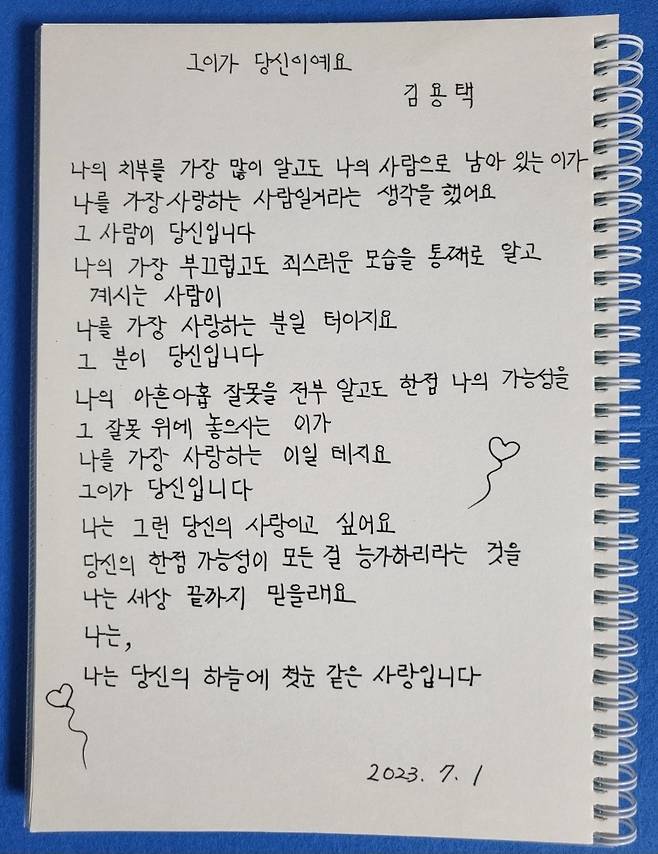 그이가 당신이예요
김용택
나의 치부를 가장 많이 알고도 나의 사람으로 남아 있는 이가
나를 가장 사랑하는 사람일거라는 생각을 했어요
그 사람이 당신입니다
나의 가장 부끄럽고도 죄스러운 모습을 통째로 알고
계시는 사람이
나를 가장 사랑하는 분일 터이지요
그 분이 당신입니다
나의 아흔아홉 잘못을 전부 알고도 한점 나의 가능성을
그 잘못 위에 놓으시는 이가
나를 가장 사랑하는 이일 테지요
그이가 당신입니다
나는 그런 당신의 사랑이고 싶어요
당신의 한점 가능성이 모든 걸 능가하리라는 것을
나는 세상 끝까지 믿을래요
나는,
나는 당신의 하늘에 첫눈 같은 사랑입니다
2023. 7. 1